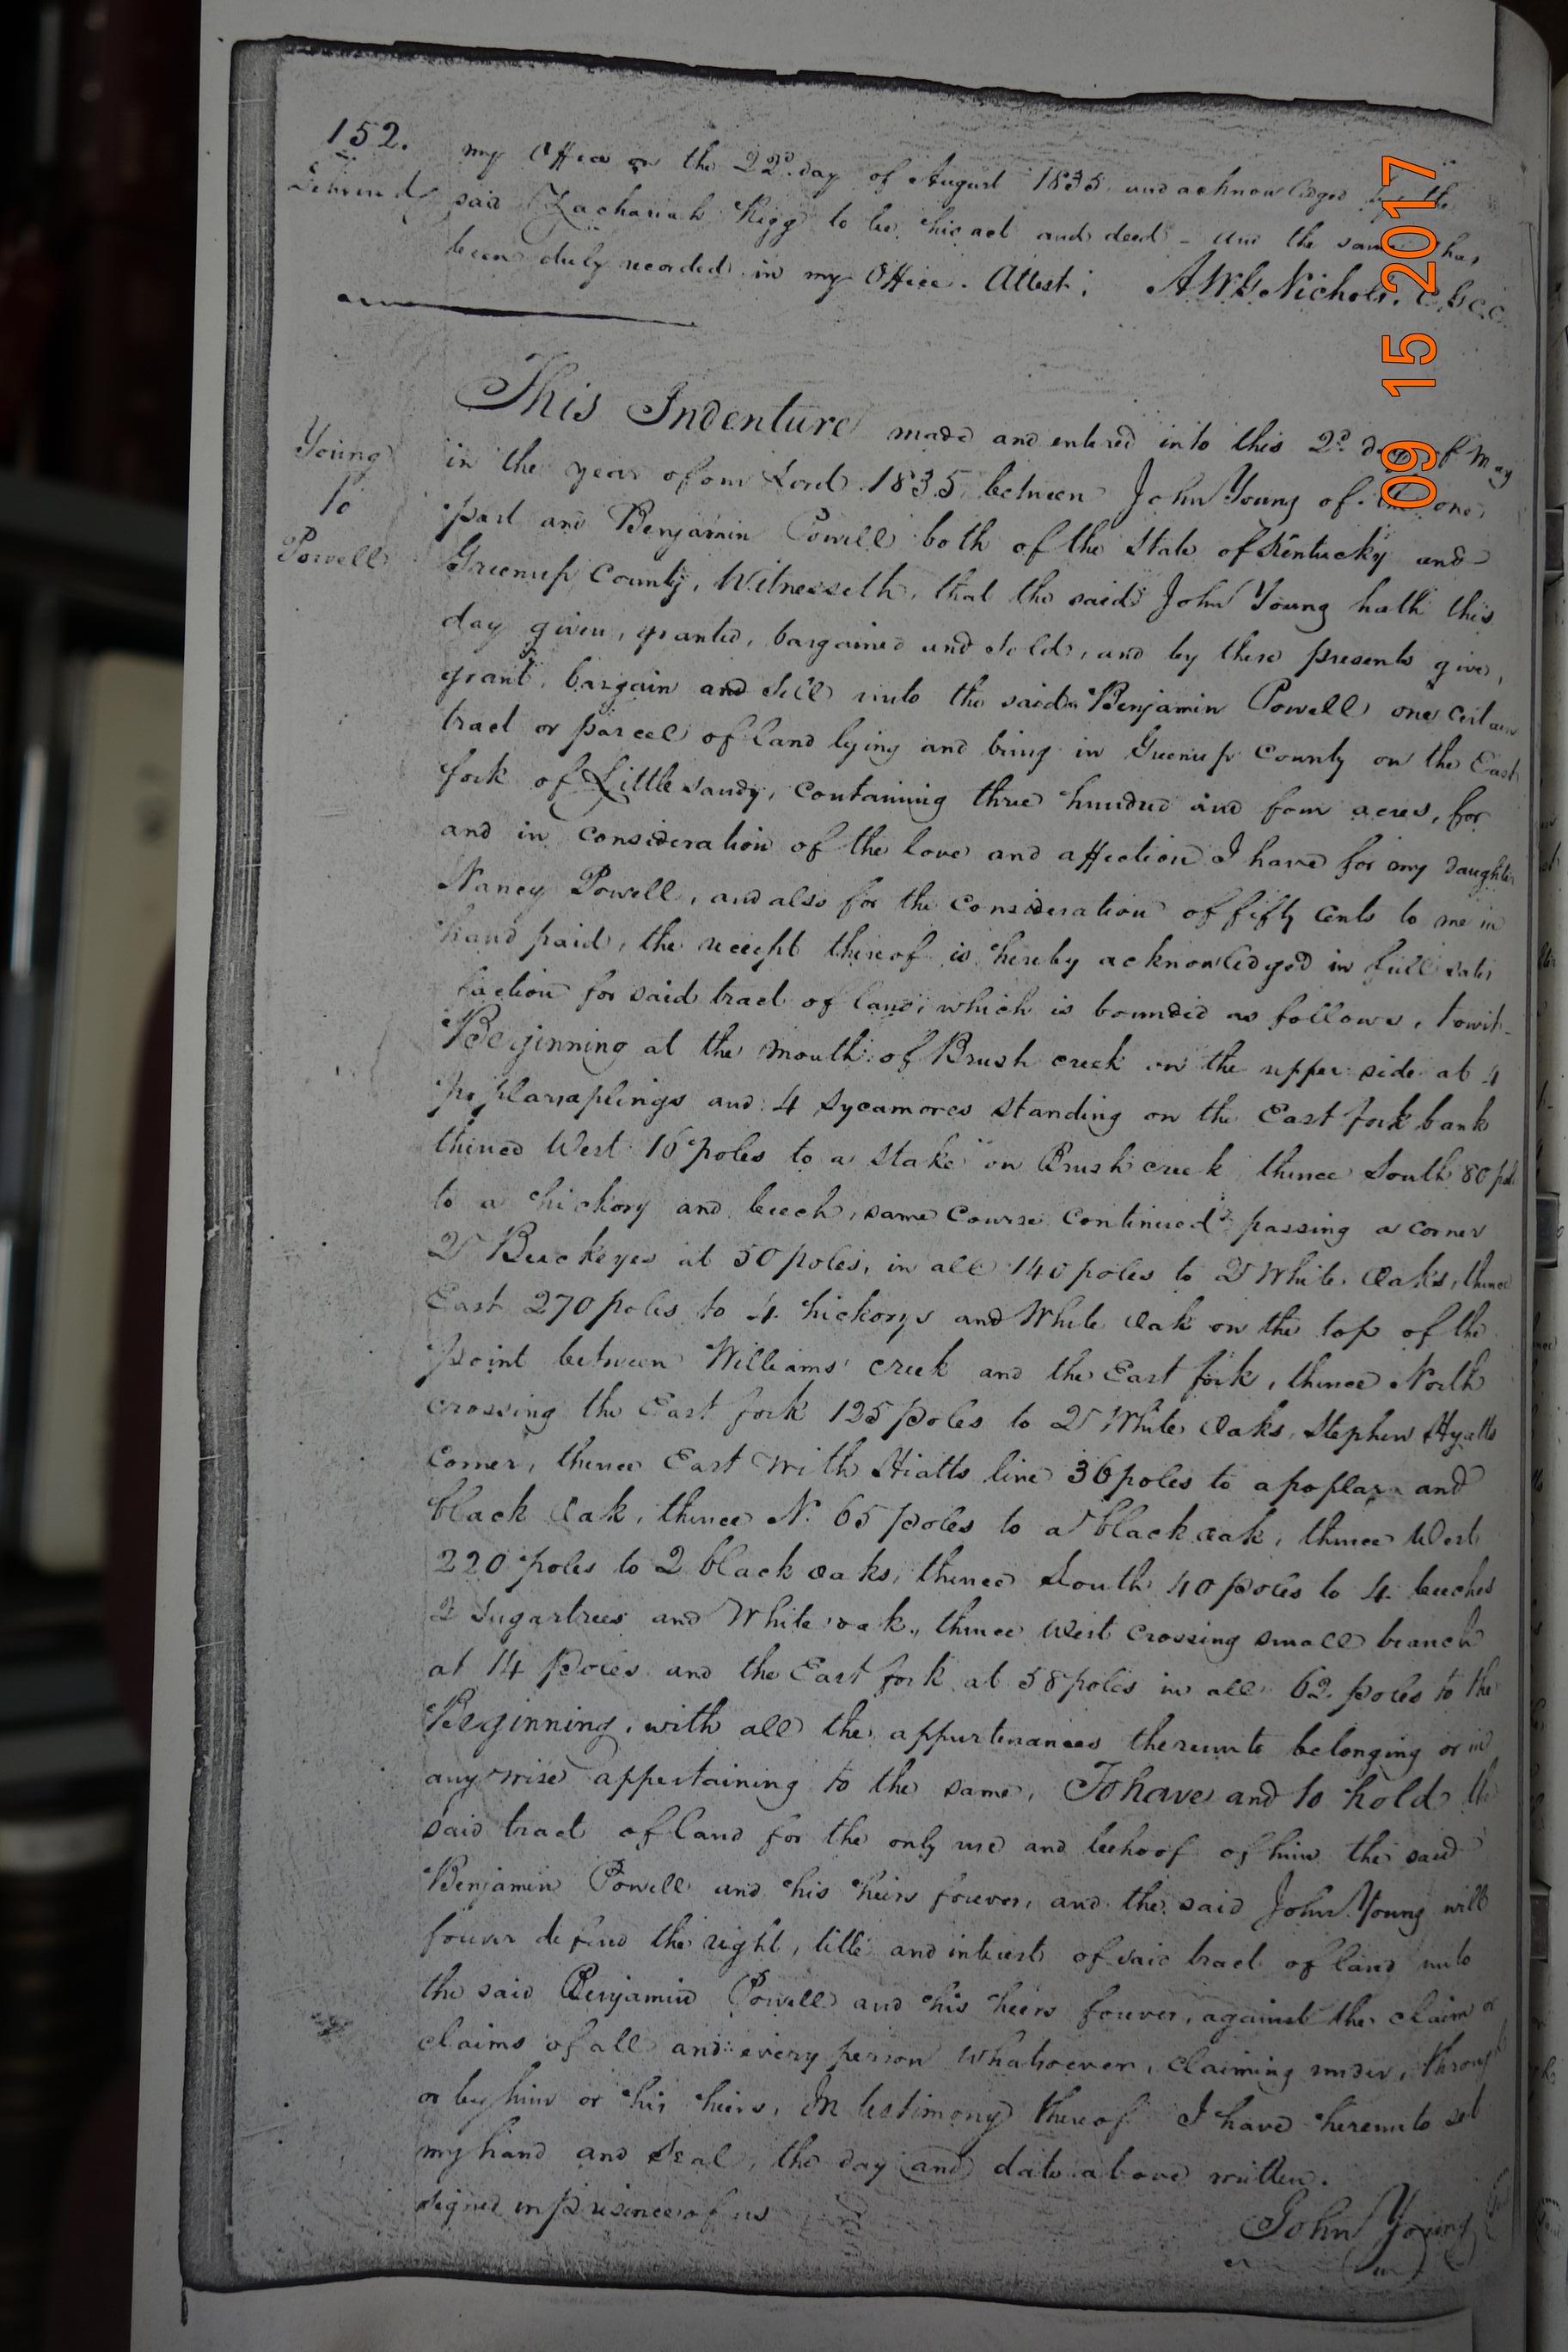 152.
my Office on the 22d. day of August 1835 and acknowledged by the
said Zachariah Rigg to be his act and deed - and the same has
been duly recorded in my Office. Attest; A. W. G. Nichols, C.G.C.C.
This Indenture made and entered into this 2d. day of May
Young
to
Powell
in the year of our Lord 1835 between John Young of the one
part and Benjamin Powell both of the State of Kentucky and
Greenup County, Witnesseth, that the said John Young hath this
day given, granted, bargained and sold, and by these presents give,
grant, bargain and sell unto the said Benjamin Powell one certain
tract or parcel of land lying and being in Greenup County on the East
fork of Little sandy, containing three hundred and four acres, for
and in consideration of the love and affection I have for my daughter
Nancy Powell, and also for the consideration of fifty cents to me in
hand paid, the receipt thereof is hereby acknowledged in full satis
faction for said tract of land, which is bounded as follows, towit-
Beginning at the mouth of Brush creek on the upper side at 4
poplar saplings and 4 Sycamores standing on the East fork bank
thence West 16 poles to a stake on Brush creek, thence South 80 pol
to a hickory and beech, same course continued passing a corner
2 Buckeyes at 50 poles, in all 140 poles to 2 White Oaks, thence
East 270 poles to 4 hickorys and White Oak on the top of the
point between Williams' creek and the East fork, thence North
crossing the East fork 125 poles to 2 White Oaks, Stephen Hyatts
Corner, thence East with Hiatts line 36 poles to a poplar and
black Oak, thence N. 65 poles to a black oak, thence West
220 poles to 2 black oaks, thence South 40 poles to 4 beeches
2 Sugartrees and White oak, thence West crossing small branch
at 14 Poles and the East fork at 58 poles in all 62 poles to the
Beginning, with all the appurtenances thereunto belonging or in
any wise appertaining to the same, To have and to hold the
said tract of land for the only use and behoof of him the said
Benjamin Powell and his heirs forever, and the said John Young will
forever defend the right, title and interest of said tract of land unto
the said Benjamin Powell and his heirs forever, against the claim or
claims of all and every person whatsoever, claiming under, through
or by him or his heirs, In testimony thereof I have hereunto set
my hand and Seal, the day and date above written.
signed in presence of us
John Young
09 15 2017